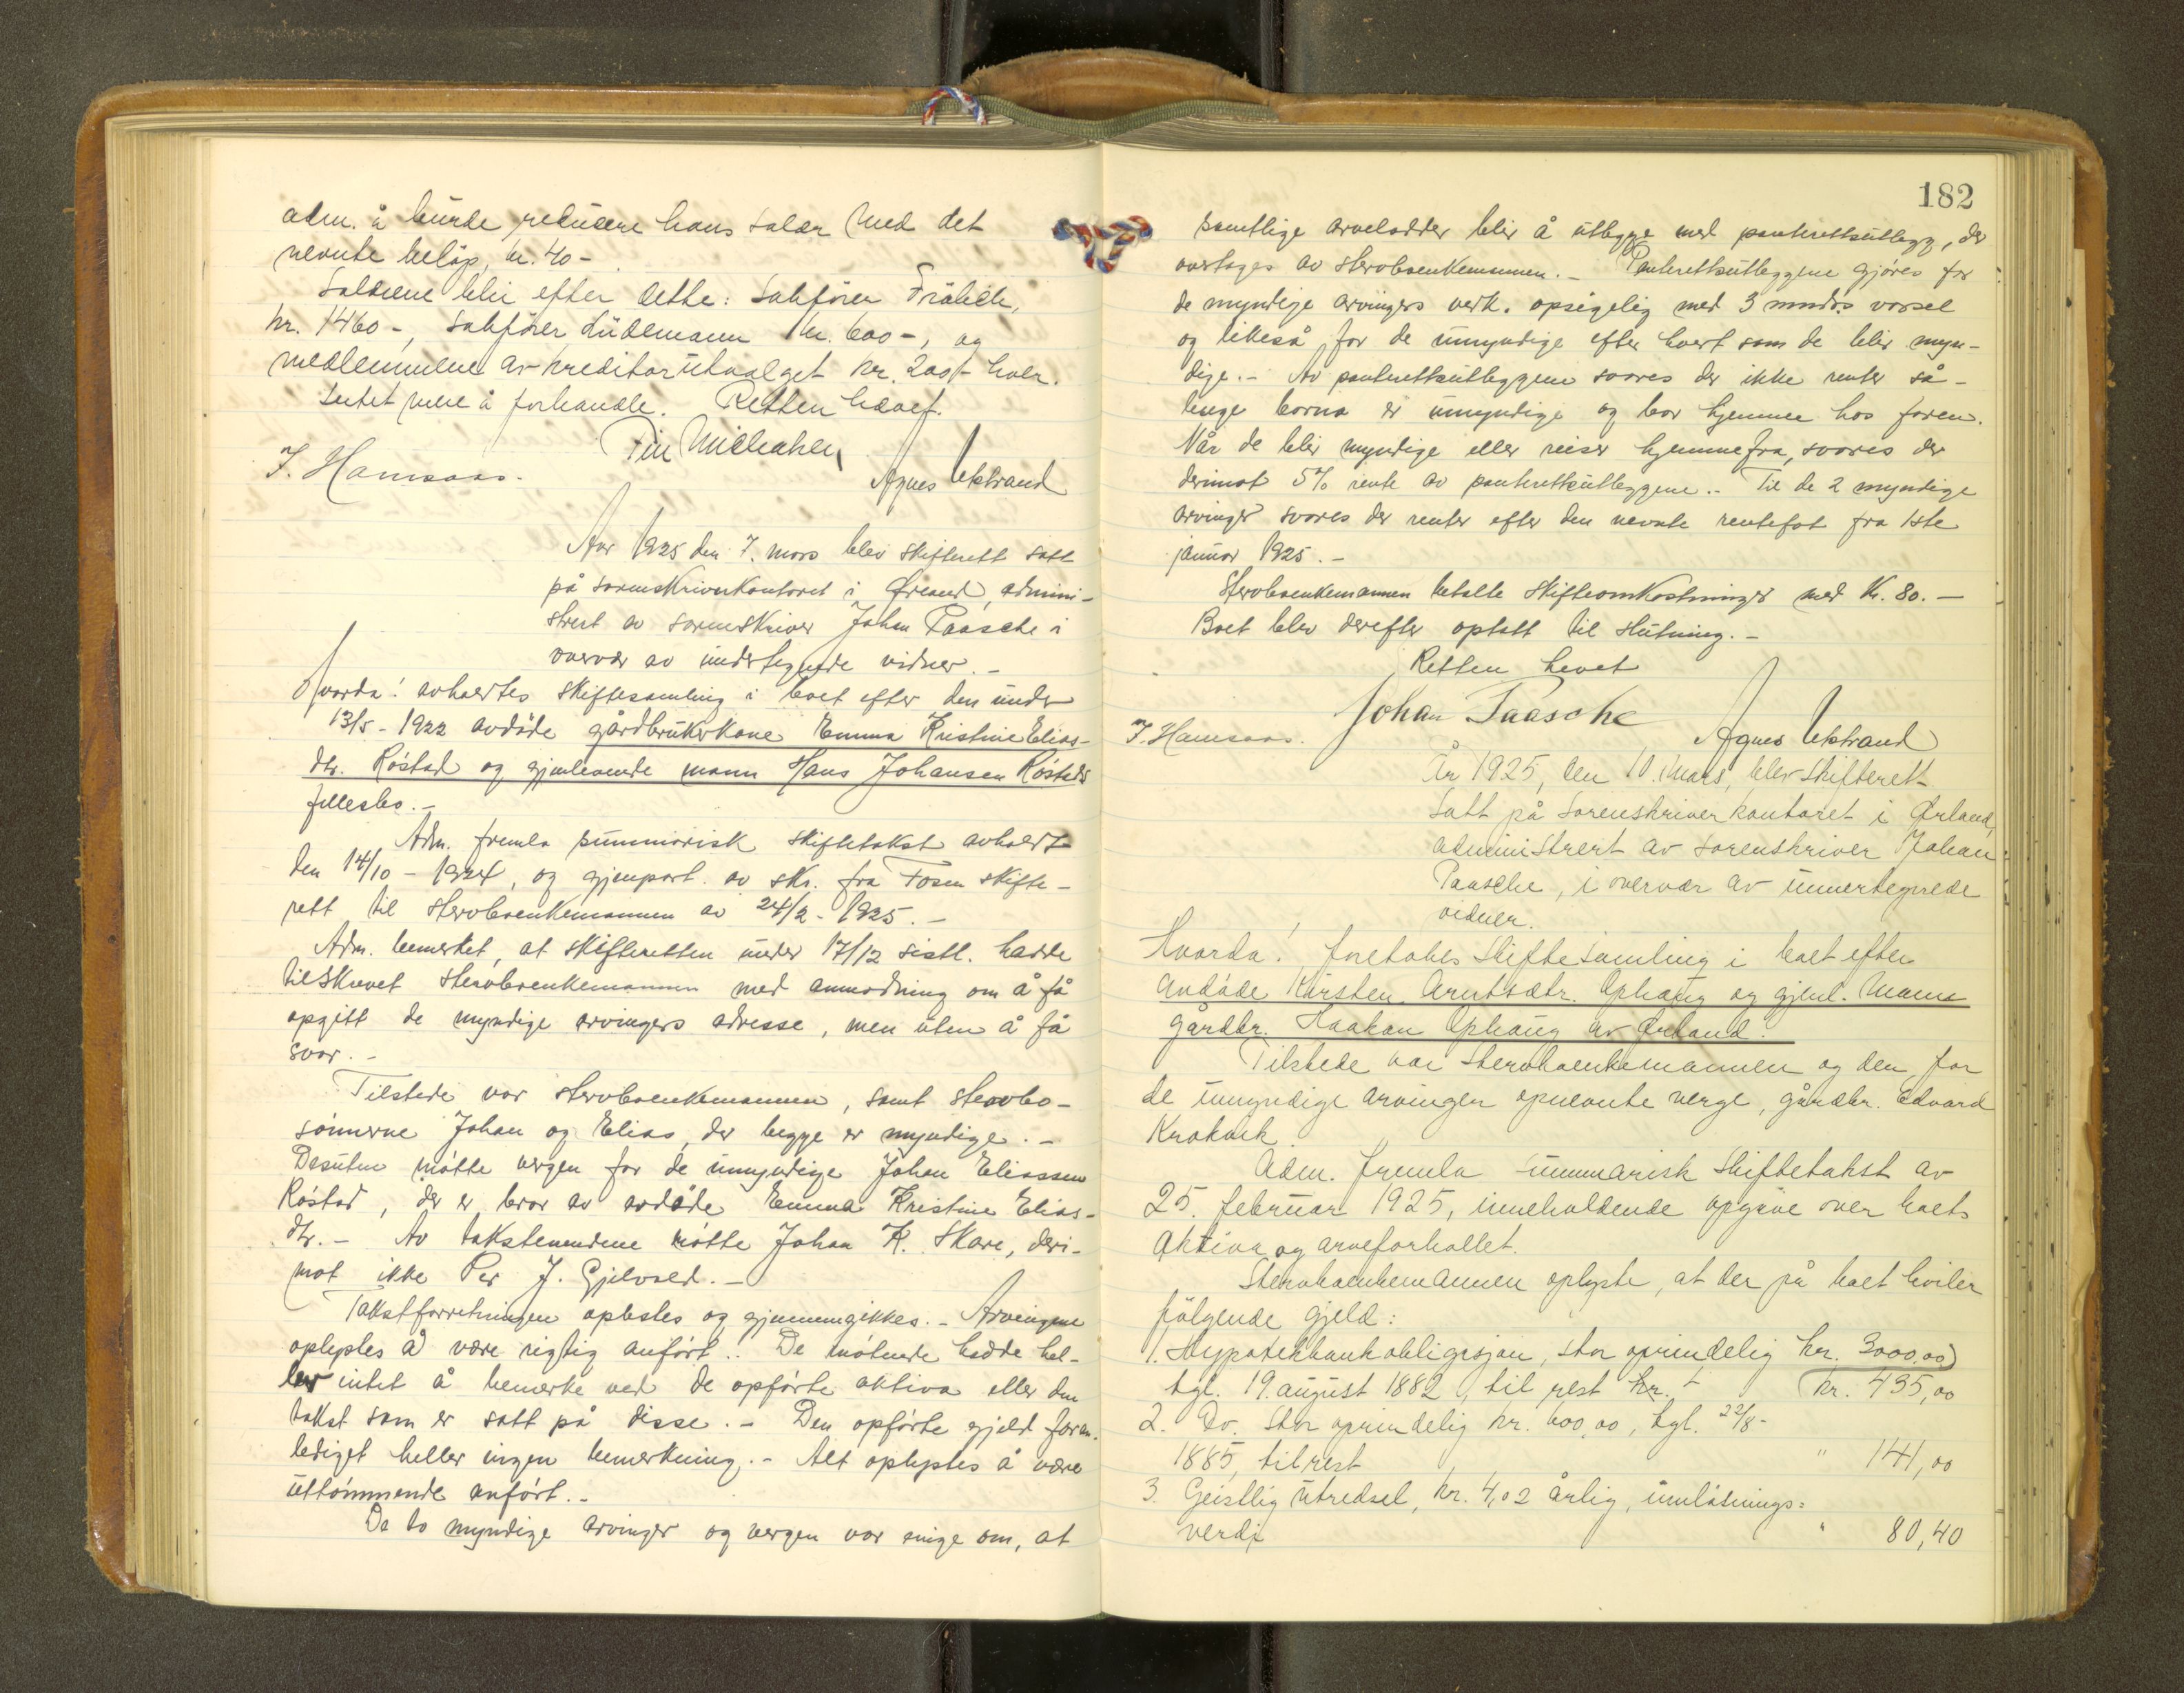 adm. å burde redusere hans salær med det
nevnte beløp, kr. 40 -
Salærene blir efter dette: Sakfører Frölich,
kr. 1460 -, sakfører Lüdemann kr. 600 -, og
medlemmene av kreditorutvalget kr. 200 - hver.
Intet mere å forhandle. Retten hævet.
Finn Michalsen
F. Hamsaas. Agnes Ukstrand
Aar 1925 den 7. mars blev skifterett satt
på sorenskriverkontoret i Ørland, admini-
strert av sorenskriver Johan Paasche i
overvær av undertegnede vidner. -
Hvorda! avholdtes skiftesamling i boet efter den under
13/5 - 1922 avdöde gårdbrukerkone Emma Kristine Elias-
dtr. Röstad og gjenlevende mann Hans Johansen Röstads
fellesbo. -
Adm. fremla summarisk skiftetakst avholdt
den 14/10 - 1924, og gjenpart av skr. fra Fosen skifte-
rett til stervboenkemannen av 24/2 - 1925. -
Adm. bemerket, at skifteretten under 17/12 sistl. hadde
tilskrevet stervboenkemannen med anmodning om å få
opgitt de myndige arvingers adresse, men uten å få
svar. -
Tilstede var stervboenkemannen, samt stervbo-
sönnerne Johan og Elias, der begge er myndige. -
Desuten mötte vergen for de umyndige Johan Eliassen
Röstad, der er bror av avdöde Emma Kristine Elias-
dtr. - Av takstmendene mötte Johan K. Skare, deri-
mot ikke Per J. Gjelvold. -
Takstforretningen oplestes og gjennemgikkes. - Arvingene
oplystes å være rigtig anført. De mötende hadde hel-
ler intet å bemerke ved de opförte aktiva eller den
takst som er satt på disse. - Den opförte gjeld foran-
lediget heller ingen bemerkning. - Alt oplystes å være
uttömmende anfört. -
De to myndige arvinger og vergen var enige om, at
182
samtlige arvelodder blir å utlegge med panterettsutlegg, der
overtages av stervboenkemannen. - Panterettsutleggene gjöres for
de myndige arvingers verk. opsigelig med 3 mndrs varsel
og likeså for de umyndige efter hvert som de blir myn-
dige. - Av panterettsutleggene svares der ikke renter så-
lenge barna er umyndige og bor hjemme hos faren.
Når de blir myndige eller reiser hjemmefra, svares der
derimot 5% rente av panterettsutleggene. - Til de 2 myndige
arvinger svares der renter efter den nevnte rentefot fra 1ste
januar 1925. -
Stervboenkemannen betalte skifteomkostninger med Kr. 80. -
Boet blev derefter optatt til slutning. -
Retten hevet
Johan Paasche
F. Hamsaas. Agnes Ukstrand
År 1925, den 10. mars, blev skifterett
satt på sorenskriverkontoret i Ørland,
administrert av sorenskriver Johan
Paasche, i overvær av undertegnede
vidner.
Hvorda! foretokes skiftesamling i boet efter
avdøde Karsten Arntsdtr. Ophaug og gjenl. mann
gårdbr. Haakon Ophaug av Ørland.
Tilstede var stervboenkemannen og den for
de umyndige arvinger opnevnte verge, gårdbr. Edvard
Krokvik.
Adm. fremla summarisk skiftetakst av
25. februar 1925, inneholdende opgave over boets
aktiva og arveforholdet.
Stervboenkemannen oplyste, at der på boet hviler
fölgende gjeld:
1. Hypotekbankobligasjon, stor oprindelig kr. 3000,00
tgl. 19. august 1882, til rest kr. - kr. 435,00
2. Do. stor oprindelig kr. 600,00, tgl. 22/8-
1885, til rest " 141,00
3. Geistlig utredsel, kr. 4,02 årlig, innlösnings=
verdi " 80,40